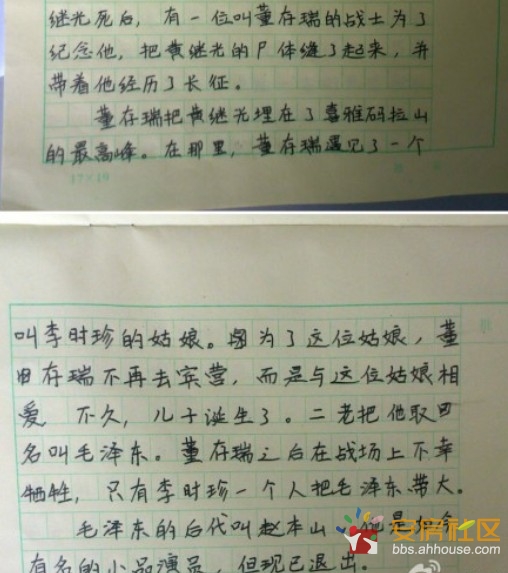 继光死后，有一位叫董存瑞的战士为了
纪念他，把黄继光的尸体缝了起来，并
带着他经历了长征。
董存瑞把黄继光埋在了喜雅码拉山
的最高峰。在那里，董存瑞遇见了一个
17×19
叫李时珍的姑娘。因为了这位姑娘，董
存瑞不再去宾营，而是与这位姑娘相
爱 不久，儿子诞生了。二老把他取
名叫毛泽东。董存瑞之后在战场上不幸
牺牲，只有李时珍一个人把毛泽东带大。
毛泽东的后代叫赵本山 他是如今
有名的小品演员，但现已退出。
安房社区
bbs.ahhouse.com